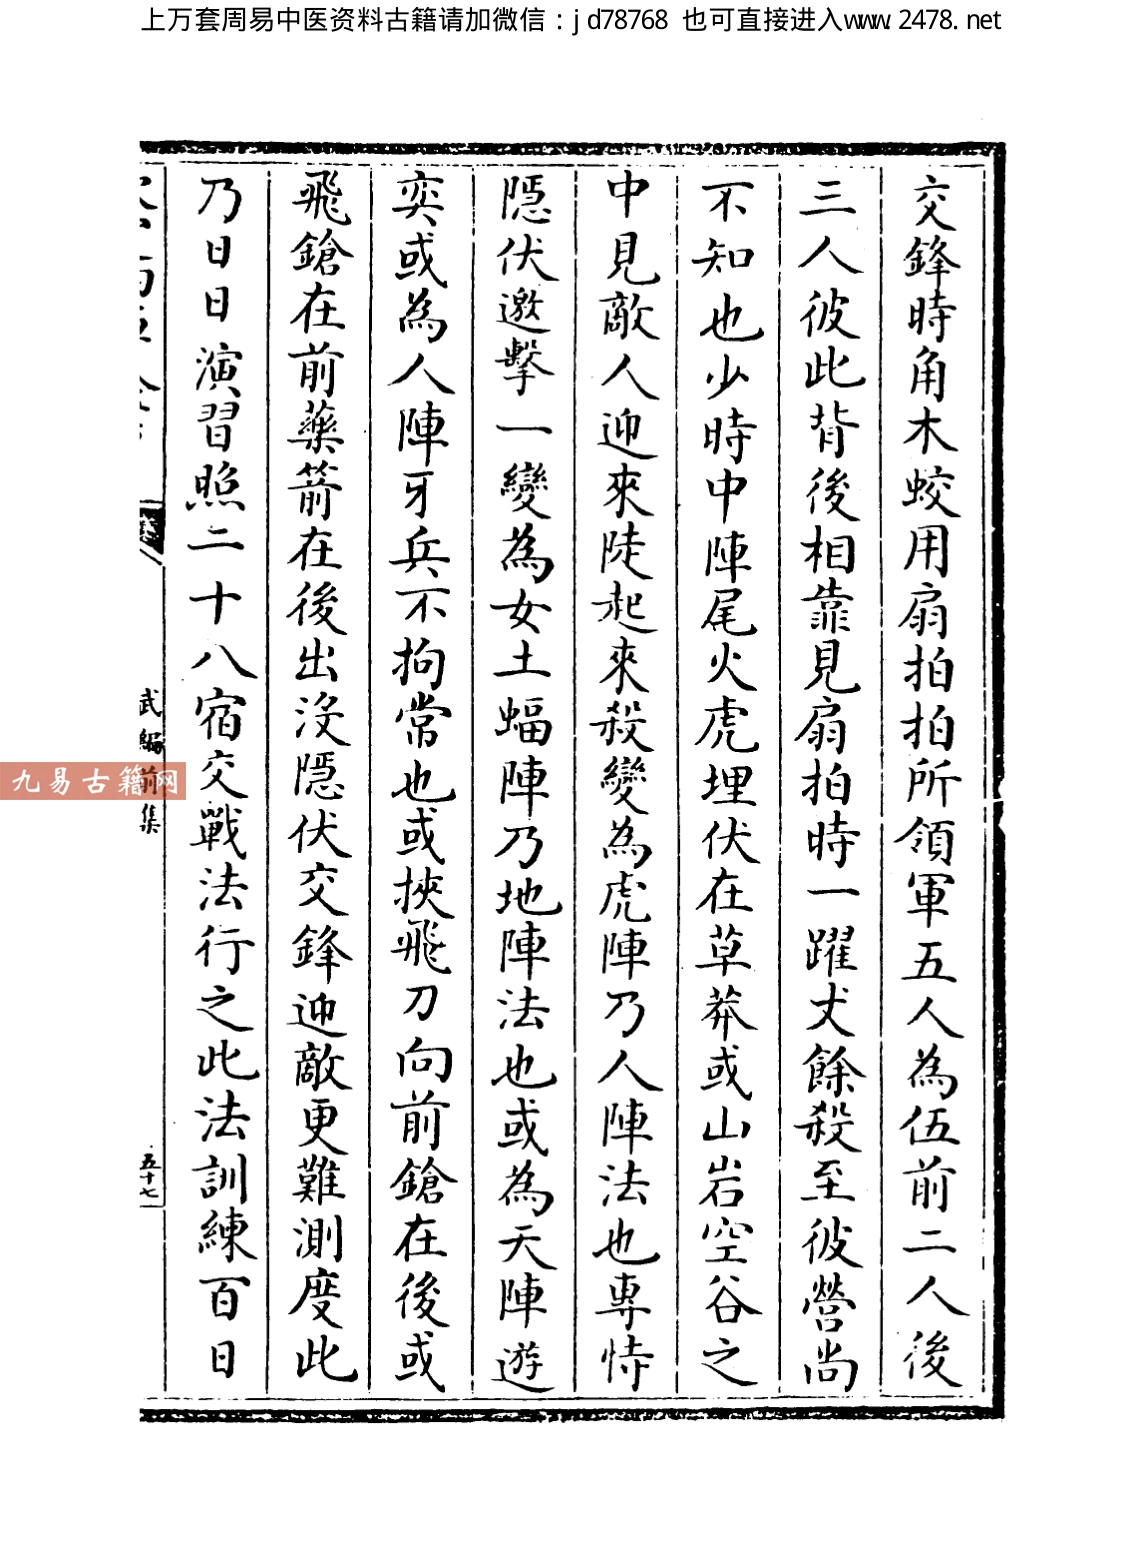 上万套周易中医资料古籍请加微信：jd78768 也可直接进入www.2478.net
交鋒時角木蛟用扇拍拍所領軍五人為伍前二人後
三人彼此背後相靠見扇拍時一躍丈餘殺至彼營尚
不知也少時中陣尾火虎埋伏在草莽或山岩空谷之
中見敵人迎來陡起來殺變為虎陣乃人陣法也專恃
隱伏邀擊一變為女土蝠陣乃地陣法也或為天陣遊
奕或為人陣牙兵不拘常也或挾飛刀向前鎗在後或
飛鎗在前藥箭在後出沒隱伏交鋒迎敵更難測度此
乃日日演習照二十八宿交戰法行之此法訓練百日
武編前集
五十七
九易古籍网